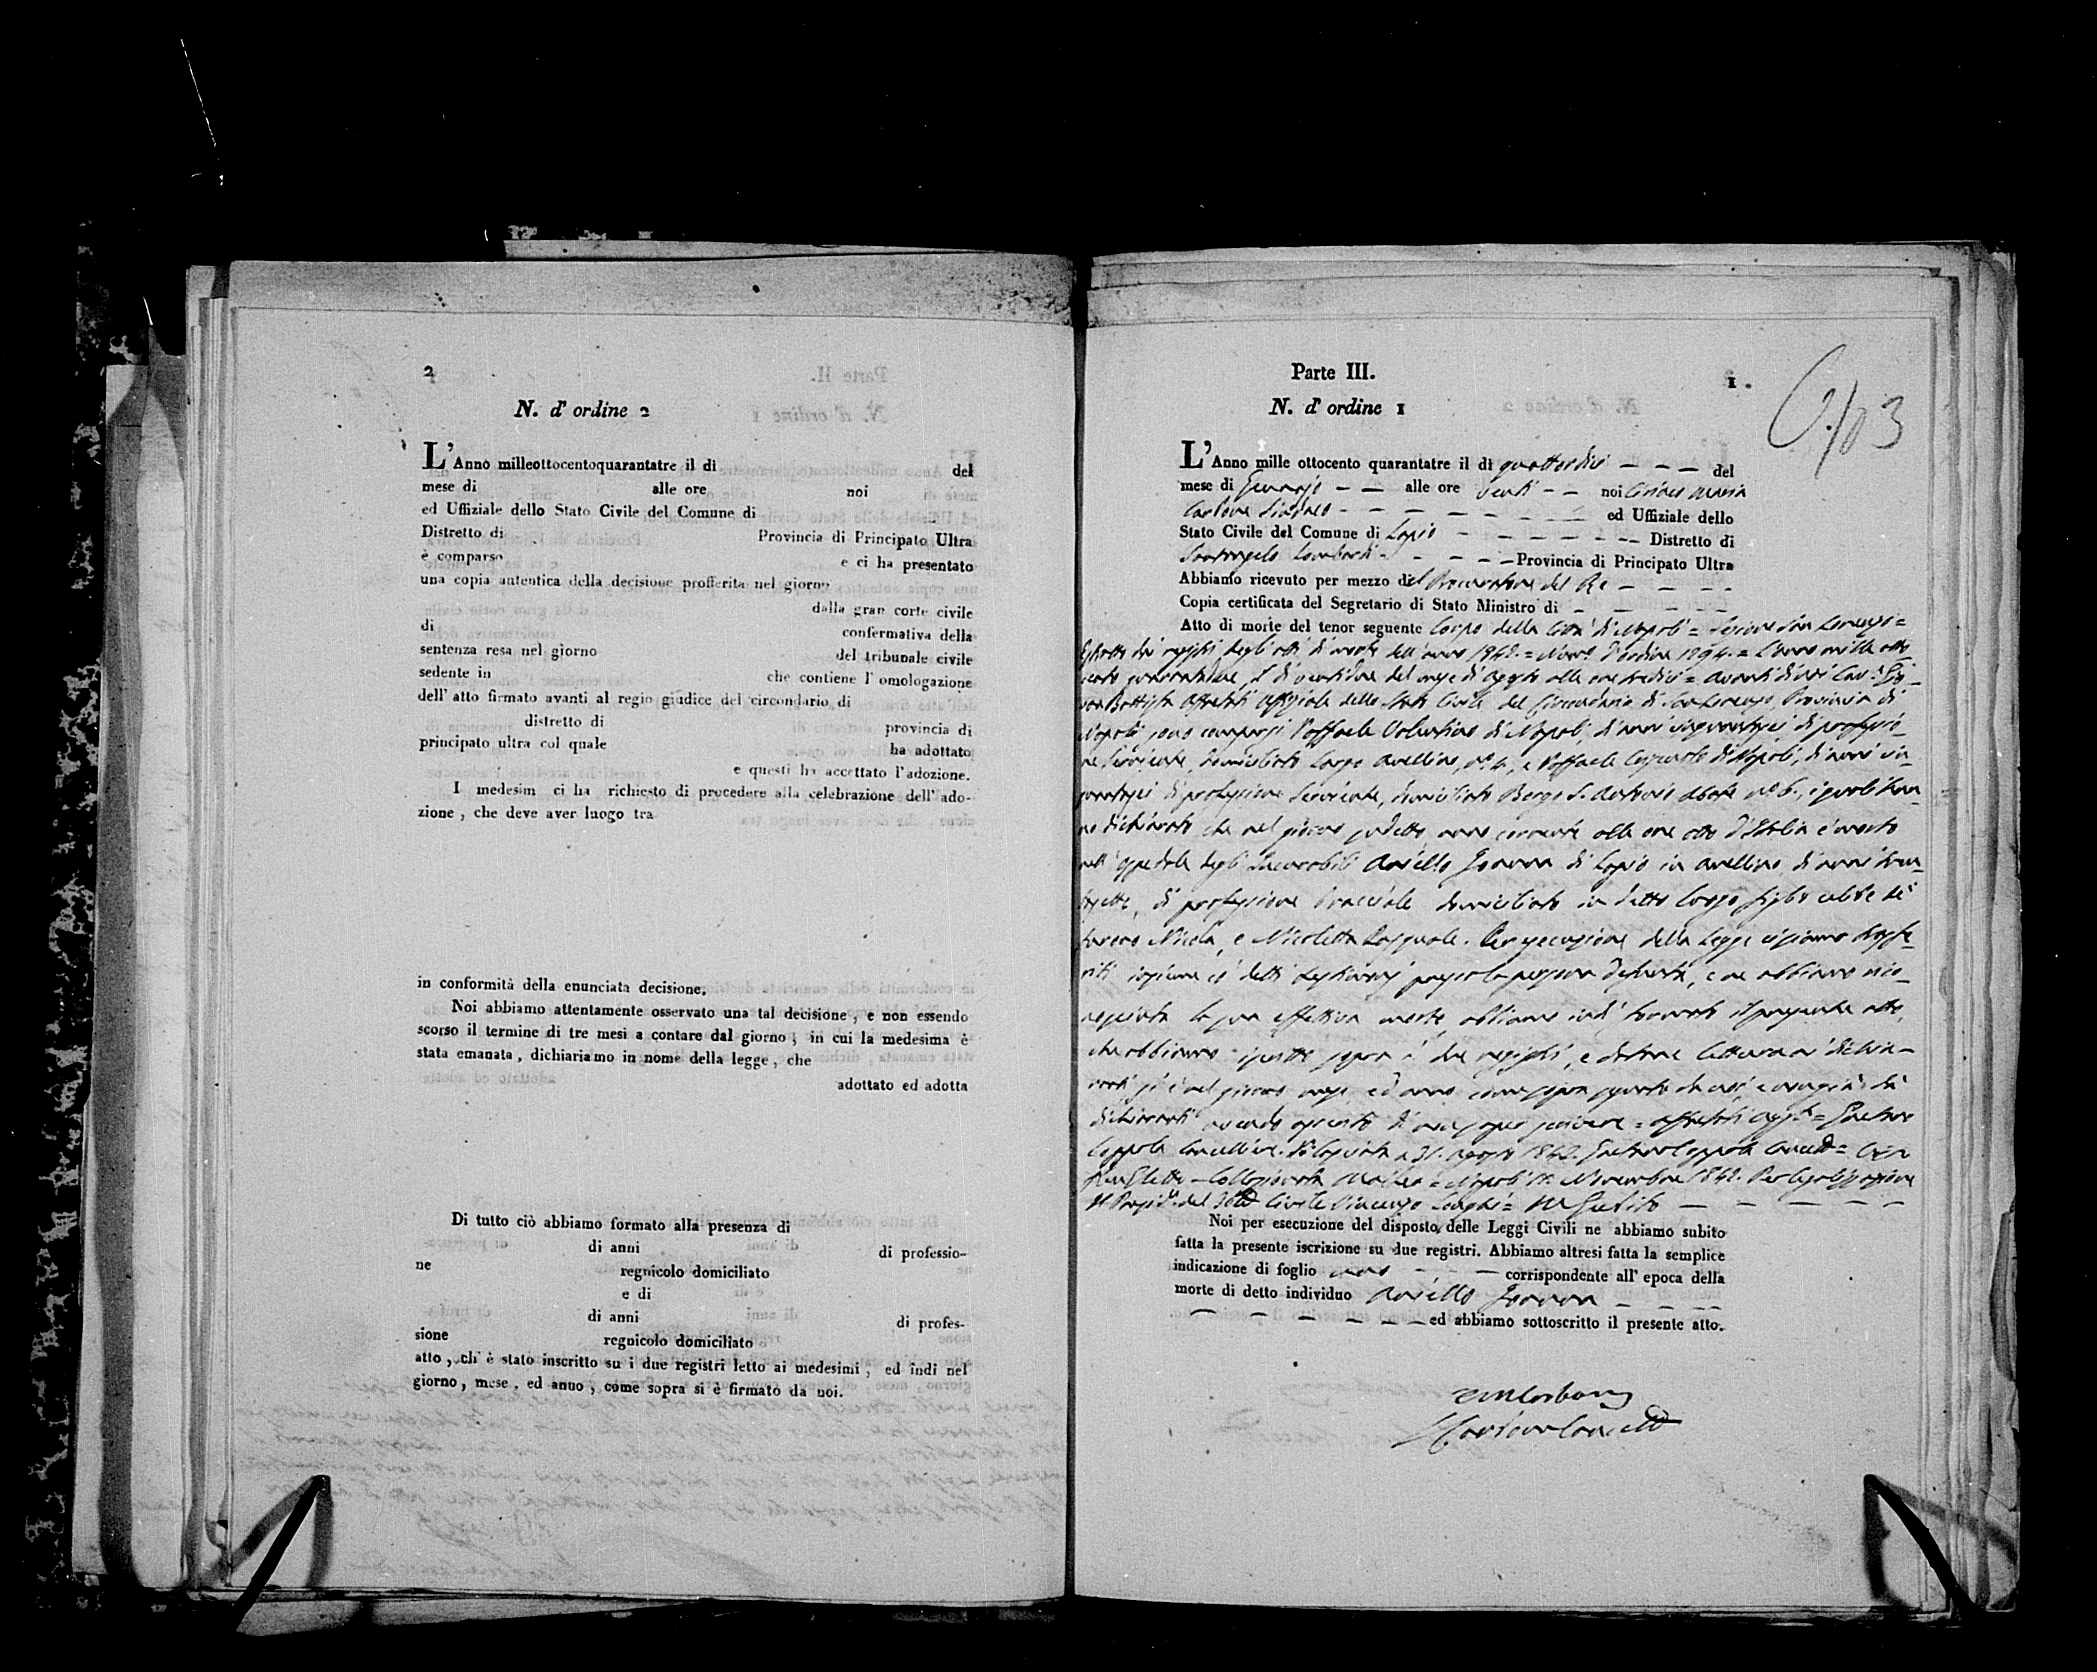 2
N. d' ordine 2
L'Anno milleottocentoquarantatre il di del
mese di alle ore noi
ed Uffiziale dello Stato Civile del Comune di
Distretto di Provincia di Principato Ultra
è comparso e ci ha presentato
una copia autentica della decisione profferita nel giorno
dalla gran corte civile
di confermativa della
sentenza resa nel giorno del tribunale civile
sedente in che contiene l' omologazione
dell' atto firmato avanti al regio giudice del circondario di
distretto di provincia di
principato ultra col quale ha adottato
e questi ha accettato l'adozione.
I medesim ci ha richiesto di procedere alla celebrazione dell' ado-
zione, che deve aver luogo tra
in conformità della enunciata decisione.
Noi abbiamo attentamente osservato una tal decisione, e non essendo
scorso il termine di tre mesi a contare dal giorno, in cui la medesima è
stata emanata, dichiariamo in nome della legge, che
adottato ed adotta
Di tutto ciò abbiamo formato alla presenza di
di anni di professio-
ne regnicolo domiciliato
e di
di anni di profes-
sione regnicolo domiciliato
atto, ch' è stato inscritto su i due registri letto ai medesimi, ed indi nel
giorno, mese, ed anno, come sopra si è firmato da noi.
Parte III.
1.
N. d' ordine 1
L'Anno mille ottocento quarantatre il di quattordici del
mese di Gennajo alle ore venti noi Maria
Sindaco ed Uffiziale dello
Stato Civile del Comune di Lapio Distretto di
Santangelo Lombardi Provincia di Principato Ultra
Abbiamo ricevuto per mezzo del Procuratore del Re
Copia certificata del Segretario di Stato Ministro di
Atto di morte del tenor seguente Corpo della Città di Napoli = Sezione San Lorenzo =
Estratto dai registri degli atti di morte dell'anno 1842. = Num. d'ordine 1294. = L'anno mille otto
cento quarantadue, il di ventidue del mese di Agosto alle ore tredici = Avanti di noi Cav. Gio
van Battista Uffiziale dello Stato Civile del Circondario di San Lorenzo, Provincia di
Napoli sono comparsi Raffaele Valentino di Napoli, di anni cinquantasei, di professio
ne Servente, domiciliato Largo Avellino, n. 4, e Raffaele di Napoli, di anni
di professione Servente, domiciliato Borgo S. Antonio Abate n. 6., i quali han
no dichiarato che nel giorno anno corrente alle ore otto d'Italia è morto
nell'Ospedale degli Incurabili Aniello Joanna di Lapio in Avellino, di anni tren
tasette, di professione bracciale domiciliato in detto luogo, figlio celibe di
furono Nicola, e Nicoletta Pasquale. Per esecuzione della Legge ci siamo trasfe
riti insieme co' detti testimonj presso la persona defunta, e ne abbiamo rico
nosciuta la sua effettiva morte, abbiamo indi formato il presente atto,
che abbiamo iscritto sopra i due registri, e datane lettura a' dichia
ranti si è nel giorno mese, ed anno come sopra segnato da noi, e non già da
dichiaranti avendo asserito di non saper scrivere = = Gaetano
Coppola Cancelliere. Rilasciata a 31. Agosto 1842. Gaetano Coppola Cancell =
= Napoli Novembre 1842. Per legalizzazione
Civile Vincenzo
Noi per esecuzione del disposto delle Leggi Civili ne abbiamo subito
fatta la presente iscrizione su due registri. Abbiamo altresi fatta la semplice
indicazione di foglio uno corrispondente all' epoca della
morte di detto individuo Aniello Joanna
ed abbiamo sottoscritto il presente atto.